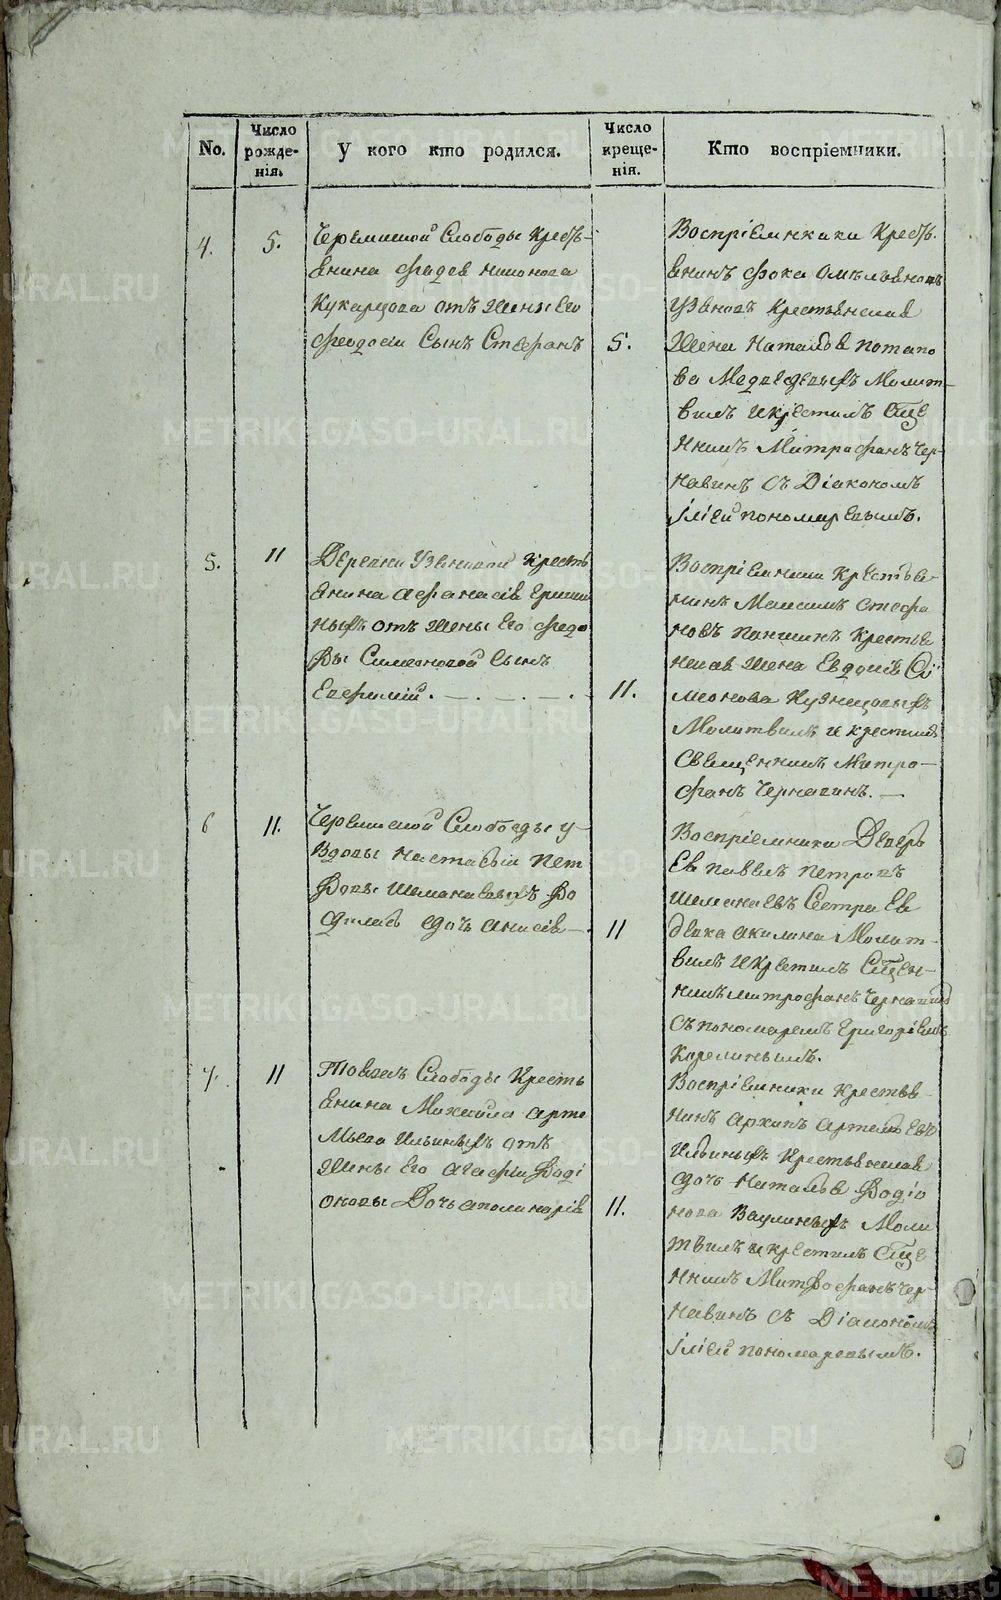 No.
Число рожде- нія.
У кого кто родился.
Число креще- нія.
Кто воспріемники.
4.
5.
Черемиской Слободы Кресть-
янина Фадея
Кукарцова отъ жены его
Феодосіи Сынъ Стефанъ
5.
Воспріемники Крестъ-
янинъ Фока
Крестьянская
Жена Наталья Потапо
ва Медведевыхъ Молит-
вилъ и крестилъ Сще
нникъ Митрофанъ Чер-
навинъ съ Діакономъ
Іліей Пономаревымъ.
5.
11
Деревни Узяновой Кресть
янина Афанасія
ныхъ отъ жены его Федо
ры Симеоновой Сынъ
Евфимій.
11.
Воспріемники Крестья-
нинъ Максимъ Стефа
новъ Паншинъ Крестья
нская жена Евдокія Си
меонова Кузнецовыхъ
Молитвилъ и крестилъ
Священникъ Митро-
фанъ Чернавинъ.
6
11.
Черемиской Слободы у
Вдовы Настасьи Пет
ровы Шемонаевыхъ Ро
дилась дочь Анисія
11
Воспріемники Деверь
Ея Павелъ Петровъ
Шемонаевъ Сестра Ея
девка Акилина Молит-
вилъ и крестилъ Сщен-
никъ Митрофанъ Чернавинъ
съ пономаремъ Григоріемъ
Карелинымъ.
7.
11
Той жъ Слободы Кресть
янина Михаила Арте
мьева Ильиныхъ отъ
жены его Агафіи Роді
оновы Дочь Аполинарія
11.
Воспріемники Крестья-
нинъ Архипъ Артемьевъ
Ильиныхъ Крестьянская
дочь Наталья Родіо
нова Ваулиныхъ Моли
твилъ и крестилъ Сще
нникъ Митрофанъ Чер-
навинъ съ Діакономъ
Іліей Пономаревымъ.
METRIKI.GASO-URAL.RU